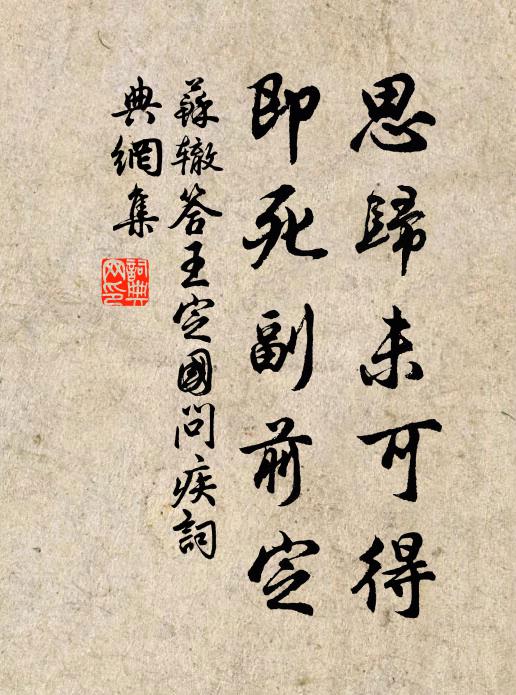 思歸未可得
即死副前定
蘇辙答王定國問疾詞
典網集
詞典
网印